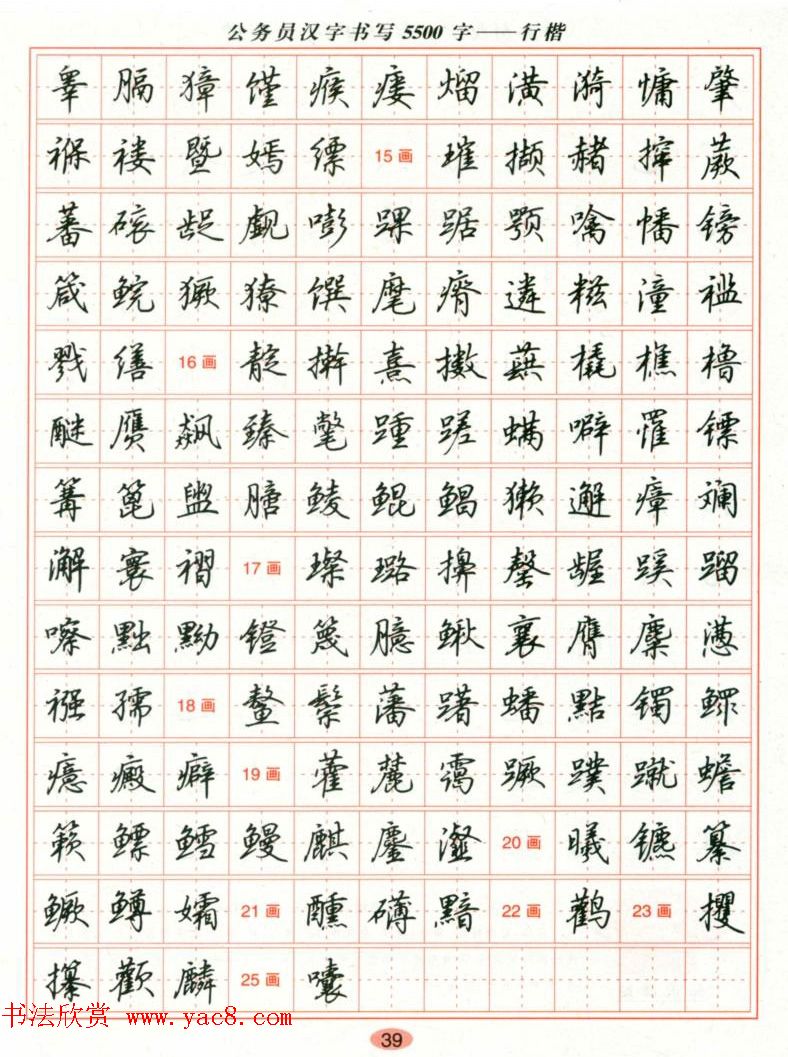 公务员汉字书写5500字——行楷
睾 膈 獐 馑 瘊 瘘 熘 潢 漪 慵 肇
褓 褛 暨 嫣 缥 15画 璀 撷 赭 撺 蕨
蕃 磙 龊 觑 嘭 踝 踞 颚 噙 幡 镑
箴 鲩 獗 獠 馔 麾 瘠 遴 糍 潼 褴
戮 缮 16画 靛 擀 熹 擞 蕻 橇 樵 橹
醚 赝 飙 臻 氅 踵 蹉 螨 噼 罹 镖
篝 篦 盥 膪 鲮 鲲 鲳 獭 邂 瘴 斓
澥 寰 褶 17画 璨 璐 擤 罄 龌 蹊 蹓
嚓 黜 黝 镫 篾 臆 鳅 襄 膺 麋 懑
襁 孺 18画 鳌 鬃 藩 躇 蟠 黠 镯 鳏
癔 癜 癖 19画 藿 麓 霭 蹶 蹼 蹴 蟾
籁 鳔 鳕 鳗 麒 鏖 瀣 20画 曦 镳 纂
鳜 鳟 孀 21画 醺 礴 黯 22画 鹳 23画 攫
攥 颧 麟 25画 囔
书法欣赏 www.yac8.com
39